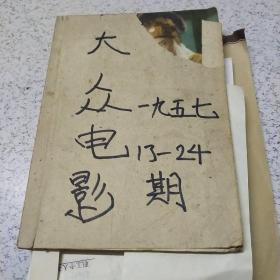 大众电影
一九五七
13-24
期